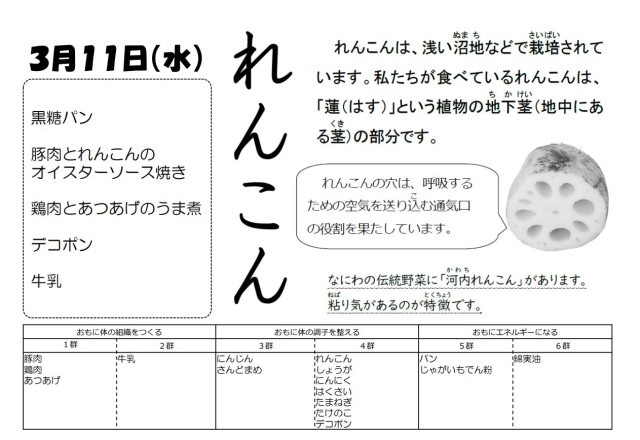 3月11日(水)
黒糖パン
豚肉とれんこんの
オイスターソース焼き
鶏肉とあつあげのうま煮
デコポン
牛乳
れんこん
れんこんは、浅い沼地などで栽培されて
います。私たちが食べているれんこんは、
「蓮(はす)」という植物の地下茎(地中にあ
る茎)の部分です。
れんこんの穴は、呼吸する
ための空気を送り込む通気口
の役割を果たしています。
なにわの伝統野菜に「河内れんこん」があります。
粘り気があるのが特徴です。
おもに体の組織をつくる おもに体の調子を整える おもにエネルギーになる
1群 2群 3群 4群 5群 6群
豚肉 牛乳 にんじん れんこん パン 綿実油
鶏肉 さんどまめ しょうが じゃがいもでん粉
あつあげ にんにく
はくさい
たまねぎ
たけのこ
デコポン